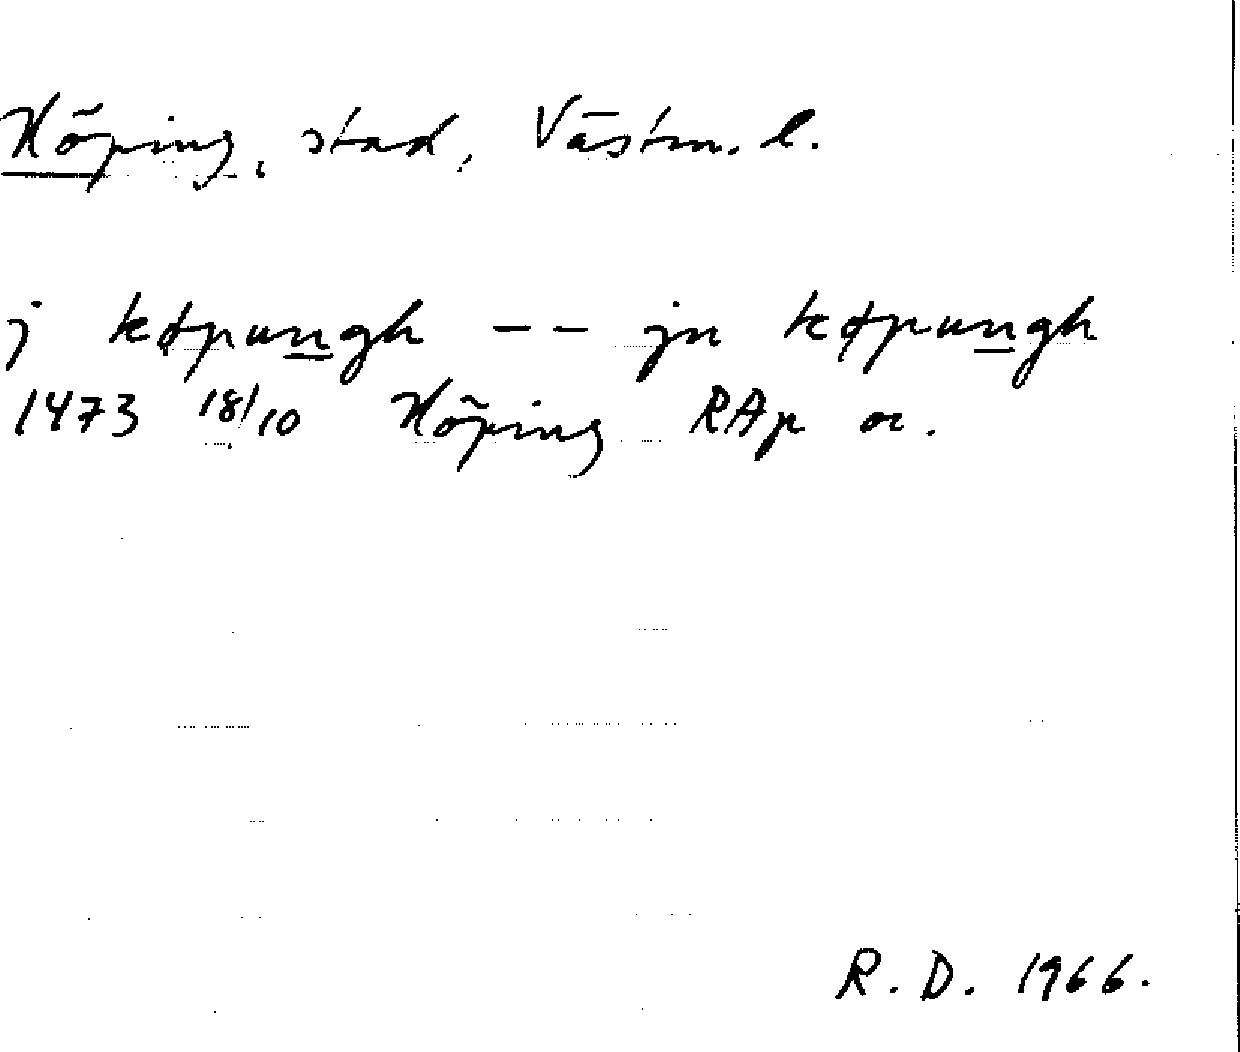 Köping, stad, Västm. l.
j køpungh -- jn køpungh
1473 18/10 Köping RAp or.
R. D. 1966.